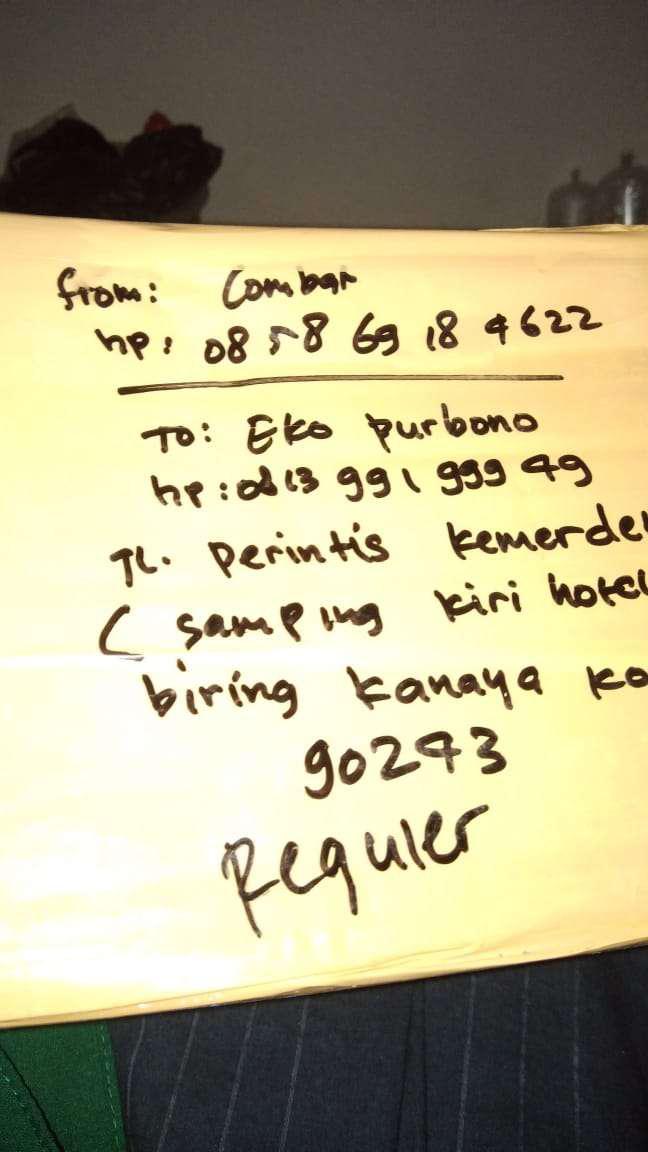 from: Combar
hp: 0858 69 18 4622
TO: Eko purbono
hp: 0813 991 999 49
JL. perintis kemerde
( samping kiri hotel
biring kanaya ko
90243
Reguler